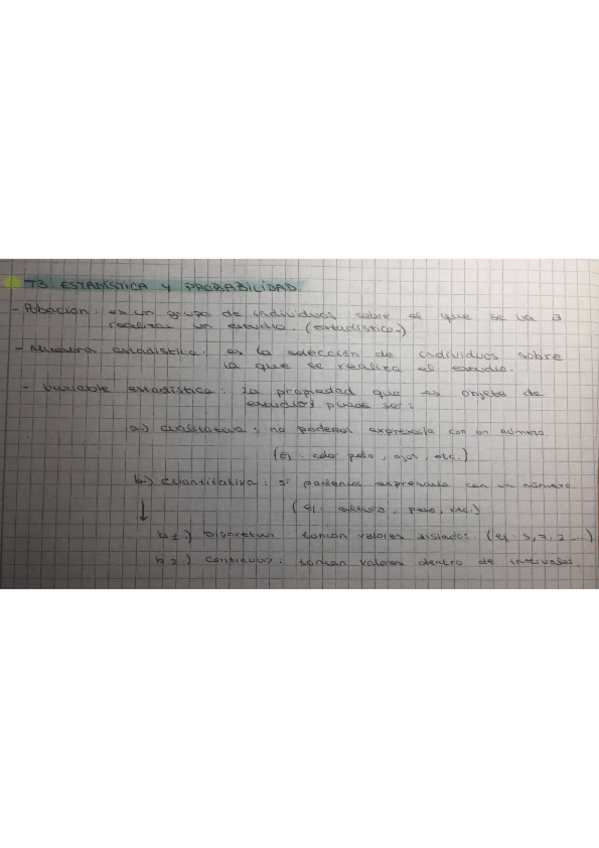 T3 ESTADÍSTICA Y PROBABILIDAD
- Población: es un grupo de individuos sobre el que se va a
realizar un estudio. (estadístico)
- Muestra estadística: es la selección de individuos sobre
la que se realiza el estudio.
- Variable estadística: la propiedad que es objeto de
estudio, puede ser:
a) cualitativa: no podemos expresarla con un número
(Ej: color pelo, ojos, etc.)
b) cuantitativa: sí podemos expresarla con un número.
(ej: altura, peso, etc.)
↓
b1) Discretas toman valores aislados. (ej: 5, 7, 2 ...)
b2) continuas: toman valores dentro de intervalos.